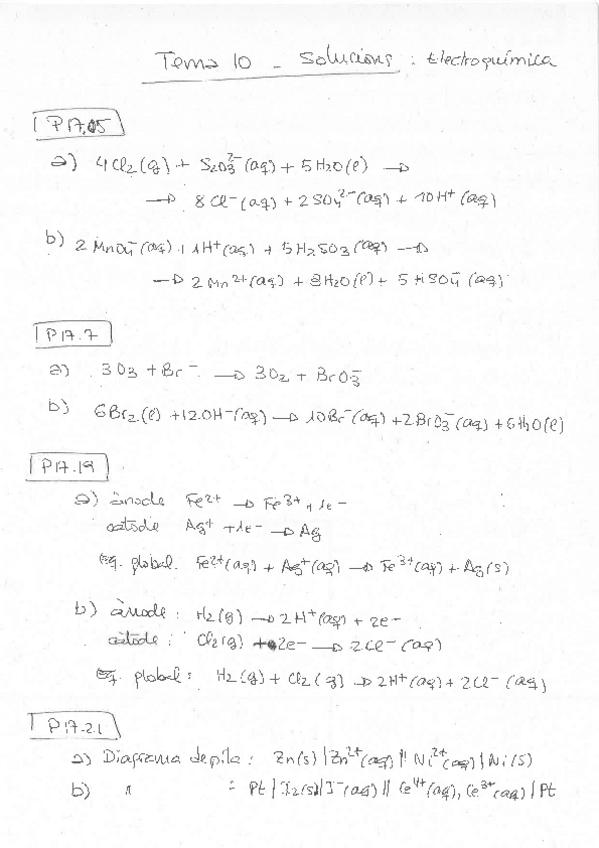 Tema 10 - Solucions : Electroquímica
P17.05
a) 4Cl₂(g) + S₂O₃²⁻(aq) + 5H₂O(l) →
→ 8Cl⁻(aq) + 2SO₄²⁻(aq) + 10H⁺(aq)
b) 2MnO₄⁻(aq) + 1H⁺(aq) + 5H₂SO₃(aq) →
→ 2Mn²⁺(aq) + 3H₂O(l) + 5HSO₄⁻(aq)
P17.7
a) 3O₃ + Br⁻ → 3O₂ + BrO₃⁻
b) 6Br₂(l) + 12OH⁻(aq) → 10Br⁻(aq) + 2BrO₃⁻(aq) + 6H₂O(l)
P17.19
a) ànode Fe²⁺ → Fe³⁺ + 1e⁻
càtode Ag⁺ + 1e⁻ → Ag
Eq. global. Fe²⁺(aq) + Ag⁺(aq) → Fe³⁺(aq) + Ag(s)
b) ànode : H₂(g) → 2H⁺(aq) + 2e⁻
càtode : Cl₂(g) + 2e⁻ → 2Cl⁻(aq)
Eq. global : H₂(g) + Cl₂(g) → 2H⁺(aq) + 2Cl⁻(aq)
P17.21
a) Diagrama de pila : Zn(s) | Zn²⁺(aq) || Ni²⁺(aq) | Ni(s)
b) " : Pt | I₂(s) | I⁻(aq) || Ce⁴⁺(aq), Ce³⁺(aq) | Pt